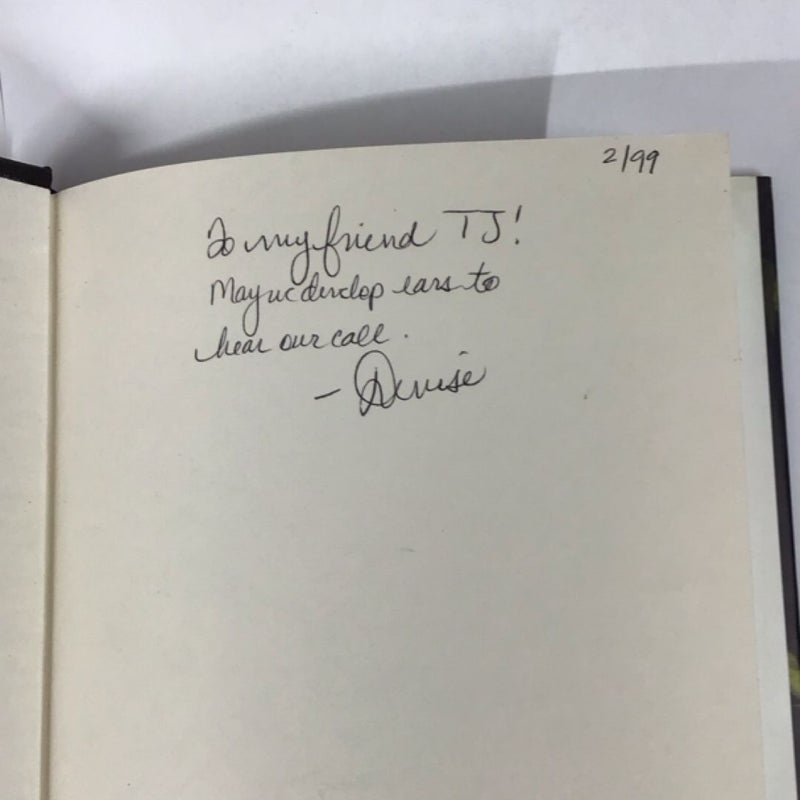 2/99
To my friend TJ!
May we develop ears to
hear our call.
- Denise